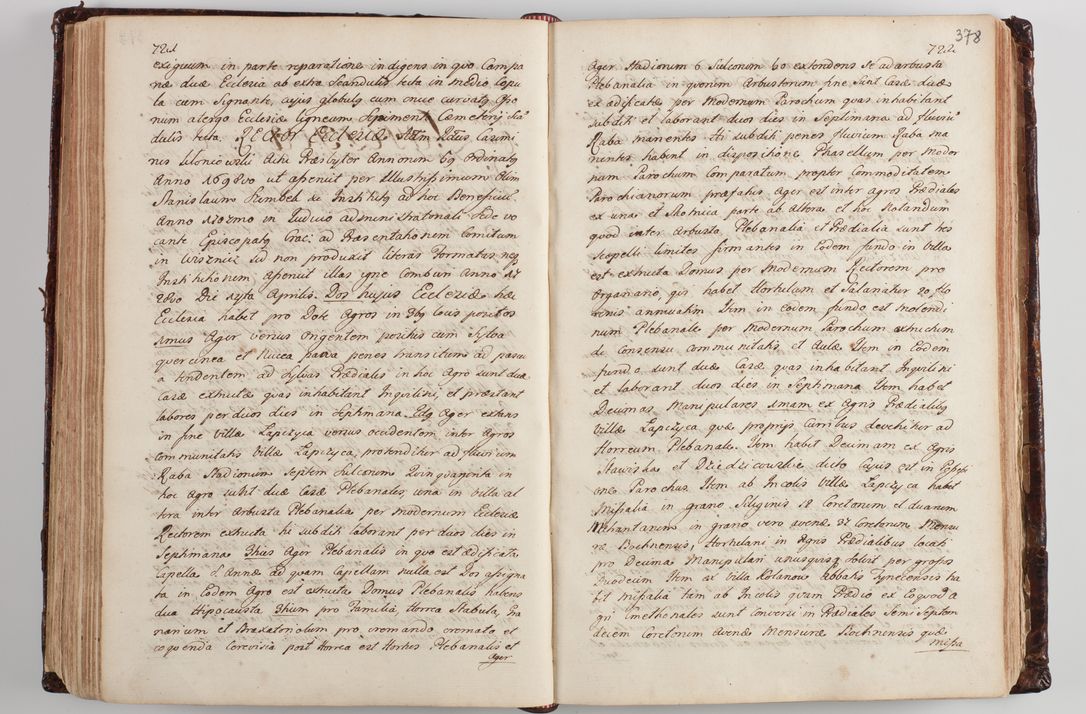 721
exiguum in parte reparatione indigens in quo Campa
næ duæ Ecclesia ab extra Scandulis tecta in medio Copu
la cum Signante, cujus globus cum cruce curvatus Ipo
num alergo Ecclesiæ ligneum Cæmenterij Sca
dulis tecta. RECTOR Ecclesiæ Item Casimi
rus Præsbyter Annorum 69 ordinatus
Anno 1698vo ut aperuit per Illustrissimum olim
Stanislaum Szembek ac Institutus ad hoc Beneficium
Anno in Judicio administratoriali Sede vo
cante Episcopatus Crac: ad Præsentationem Comitum
in Wisnicz sed non produxit literas Formatas neque
Institutionem aperuit illas igne Combur: Anno 17
28vo Die 29ta Aprilis. Dos hujus Ecclesiæ hæc
Ecclesia habet pro Dote Agros in 3bus locis positos
1mus Ager versus Orientem positus cum Sylva
quercinea et Rucca parva penes transitum ad pascu
a tendentem ad Sylvas Prædiales in hoc Agro sunt duæ
Casæ extructæ quas inhabitant Inquilini, et præstant
labores per duos dies in Septimana. 2dus Ager extans
in fine Villæ Lapczyca versus occidentem inter Agros
Communitatis Villæ Lapczyca, protenditur ad fluvium
Raba Stadiorum Septem Sulcorum Quinquaginta in
hoc Agro sunt duæ Casæ Plebanales, una in Villa al
tera inter Arbusta Plebanalia per modernum Ecclesiæ
Rectorem extructa hi subditi laborant per duos dies in
Septimana. 3tius Ager Plebanalis in quo est ædificata
Capella S. Annæ ad quam Capellam nulla est Dos assigna
ta in Eodem Agro est extructa Domus Plebanalis habens
dua Hipocausta 3tium pro Familia, Horrea Stabula, Gra
narium et Braxatorium pro cremando cremato et
coquenda Cerevisia post Horrea est Hortus Plebanalis et
Ager
722
378
Ager Stadiorum 6 Sulcorum 60 extendens se ad arbusta
Plebanalia in quorum Arbustorum fine sunt Casæ duæ
ex ædificatæ per Modernum Parochum quas inhabitant
subditi et laborant duos dies in Septimana ad fluviu
Raba manentes Hi subditi penes fluvium Raba ma
nentes habent in dispositione Phasellum per Moder
num Parochum Comparatum propter Commoditatem
Parochianorum præfatis Ager est inter Agros Prædiales
ex una et Motnica parte ab Altera et hoc Notandum
quod inter Arbusta Plebanalia et Prædialia sunt tres
Scopelli limites firmantes in Eodem fundo in Villa
est extructa Domus per Modernum Rectorem pro
Organario, qui habet Hortulum et Salariatur 20 flo
renis annuatim Item in eodem fundo est molendi
num Plebanale per Modernum Parochum extructum
de Consensu Communitatis et Aulæ Item in Eodem
fundo sunt duæ Casæ quas inhabitant Inquilini
et laborant duos dies in Septimana Item habet
Decimas Manipulares 1mam ex Agris Prædialibus
Villæ Lapczyca quæ proprijs curribus devehitur ad
Horreum Plebanale. Item habet Decimam ex Agris
Stawiska et Dziedzicowskie dicto cujus est in Posessi
one Parochus Item ab Incolis Villæ Lapczyca habet
Missalia in grano Siliginis 12 Coretorum et duarum
in grano vero avenæ 27 Coretorum Mensu
ræ Bochnensis, Hortulani in Agris Prædialibus locati
pro Decima Manipulari unusquisque solvit per grossos
Duodecim Item est Villa Kolanow Abbatis Tynecensis ha
bet Missalia tam ab Incolis quam Prædio ex eo quod a
gri Cmethonales sunt conversi in Prædiales Semiseptem
decem Coretorum Avenæ Mensuræ Bochnensis quæ
missa